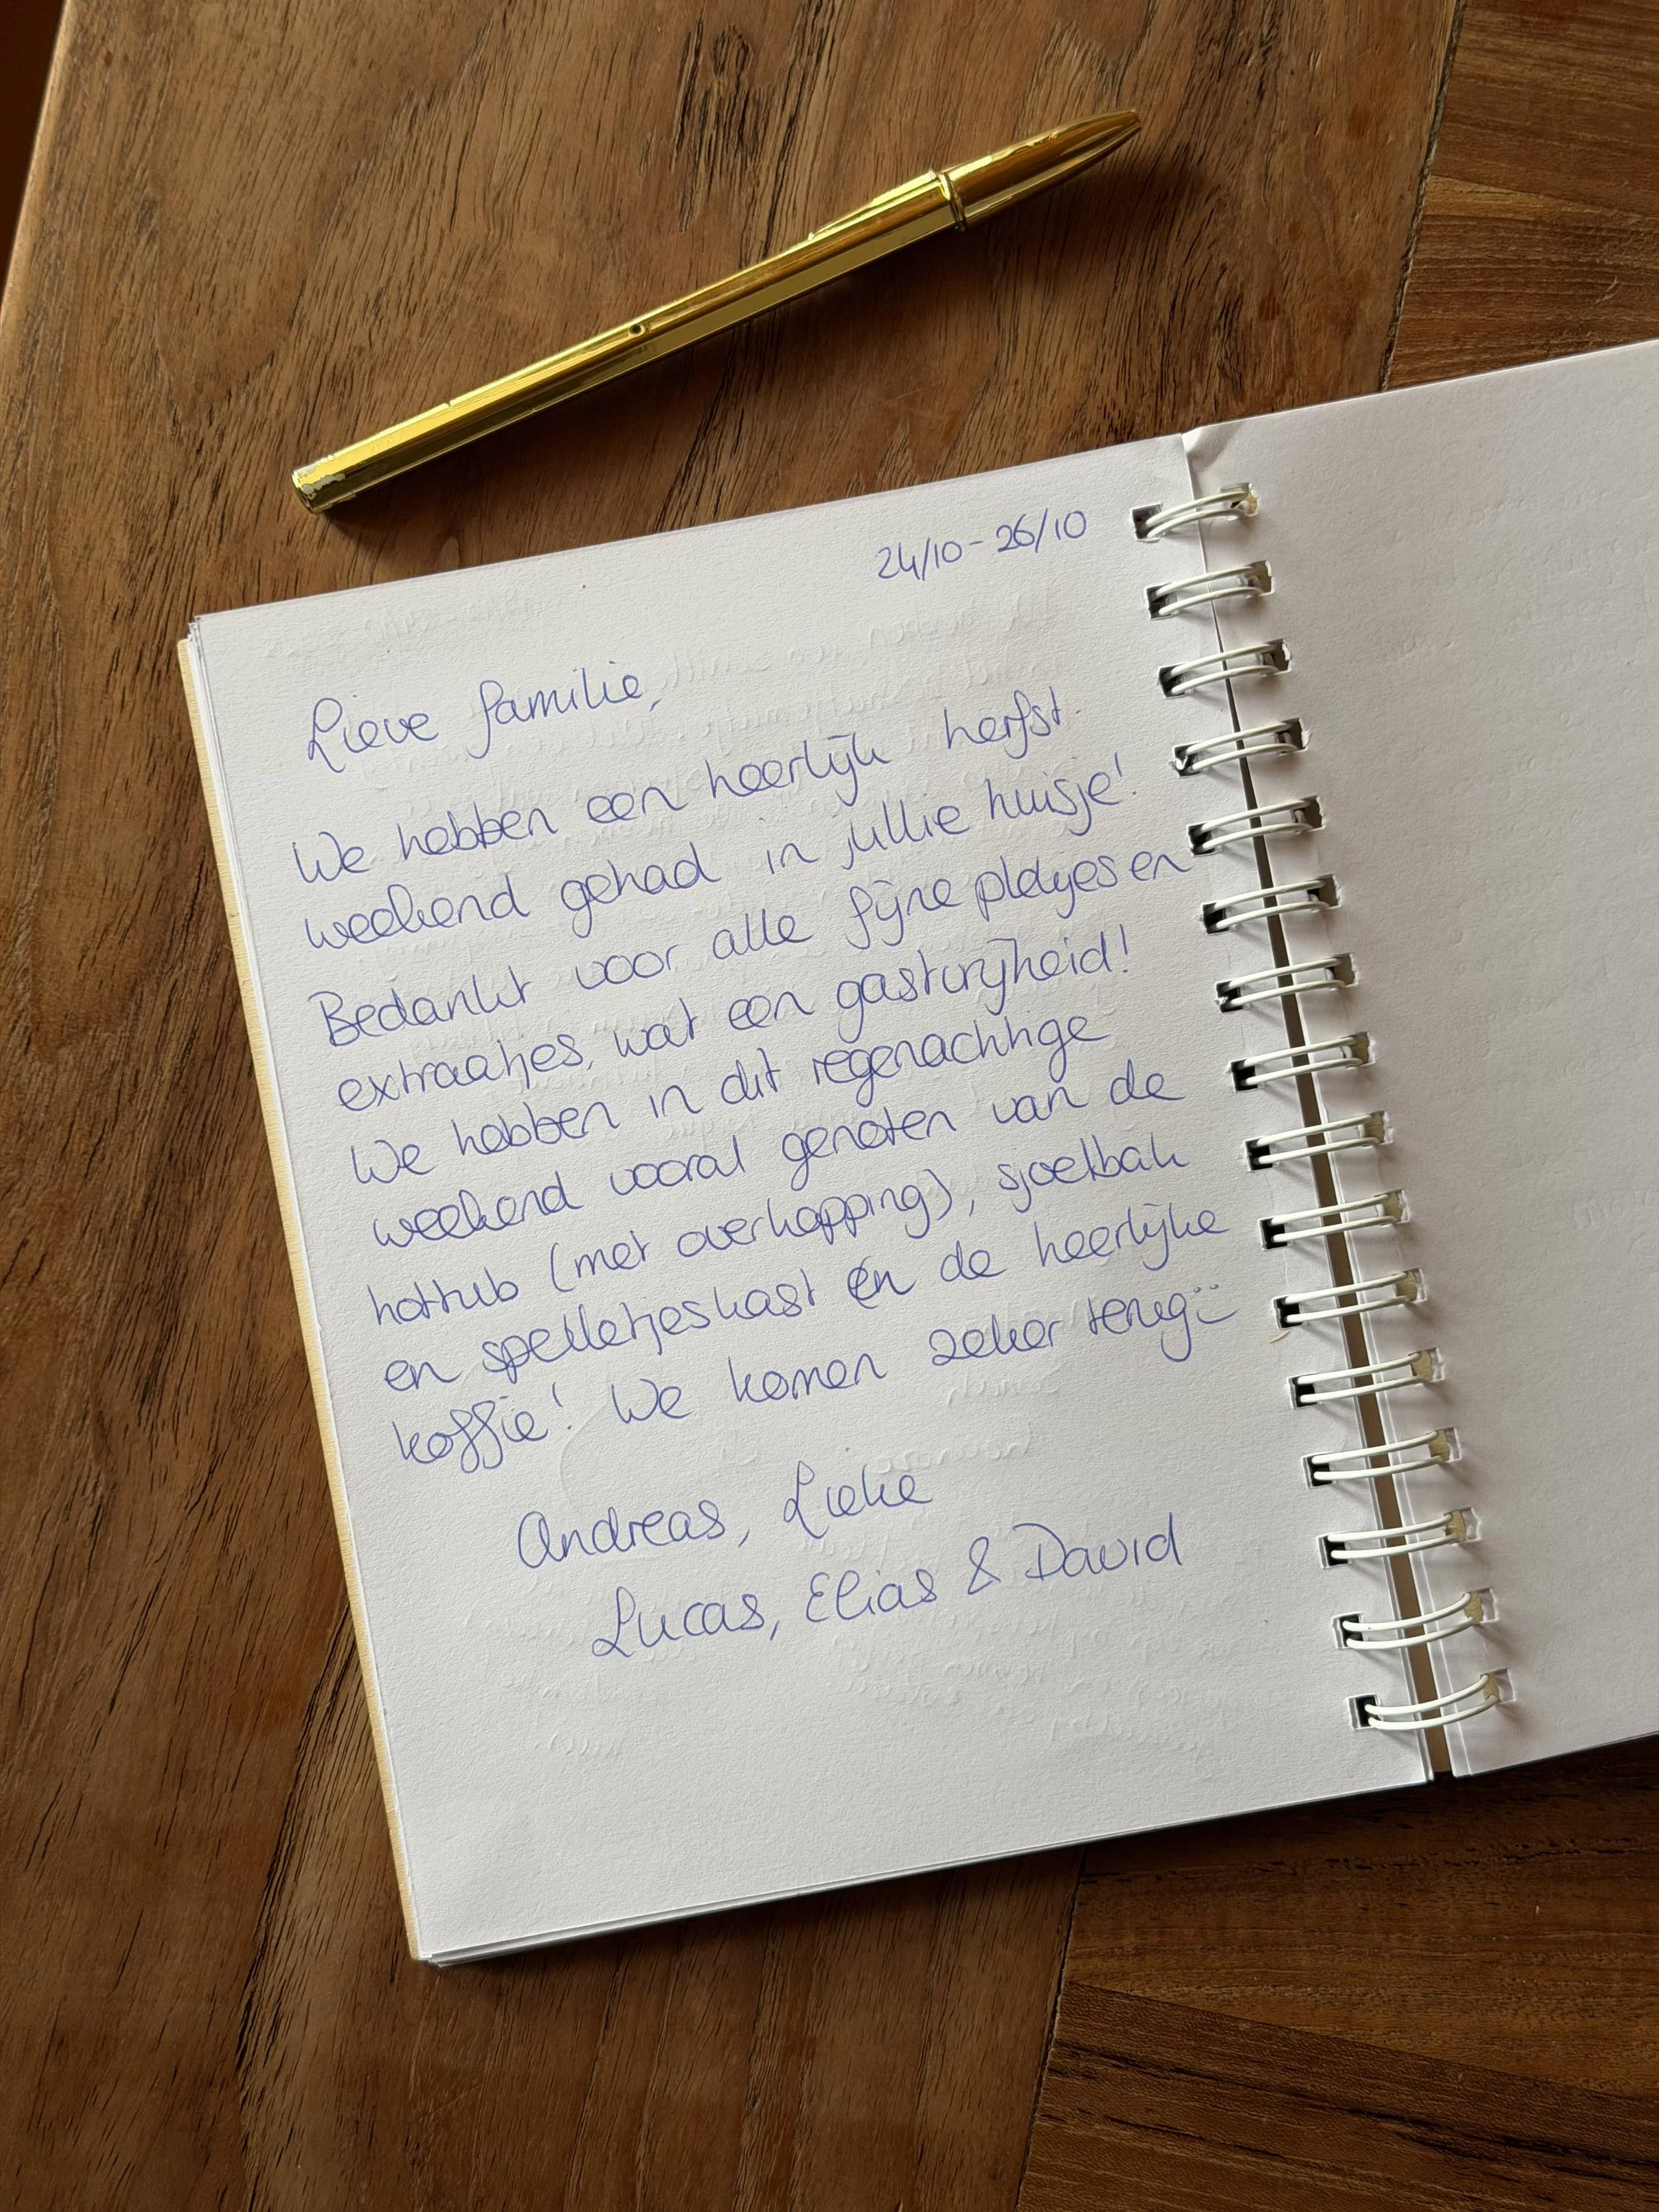 24/10 - 26/10
Lieve familie,
We hebben een heerlijk herfst-
weekend gehad in jullie huisje!
Bedankt voor alle fijne plekjes en
extraatjes, wat een gastvrijheid!
We hebben in dit regenachtige
weekend vooral genoten van de
hottub (met overkapping), sjoelbak
en spelletjeskast én de heerlijke
koffie! We komen zeker terug :)
Andreas, Lieke
Lucas, Elias & David